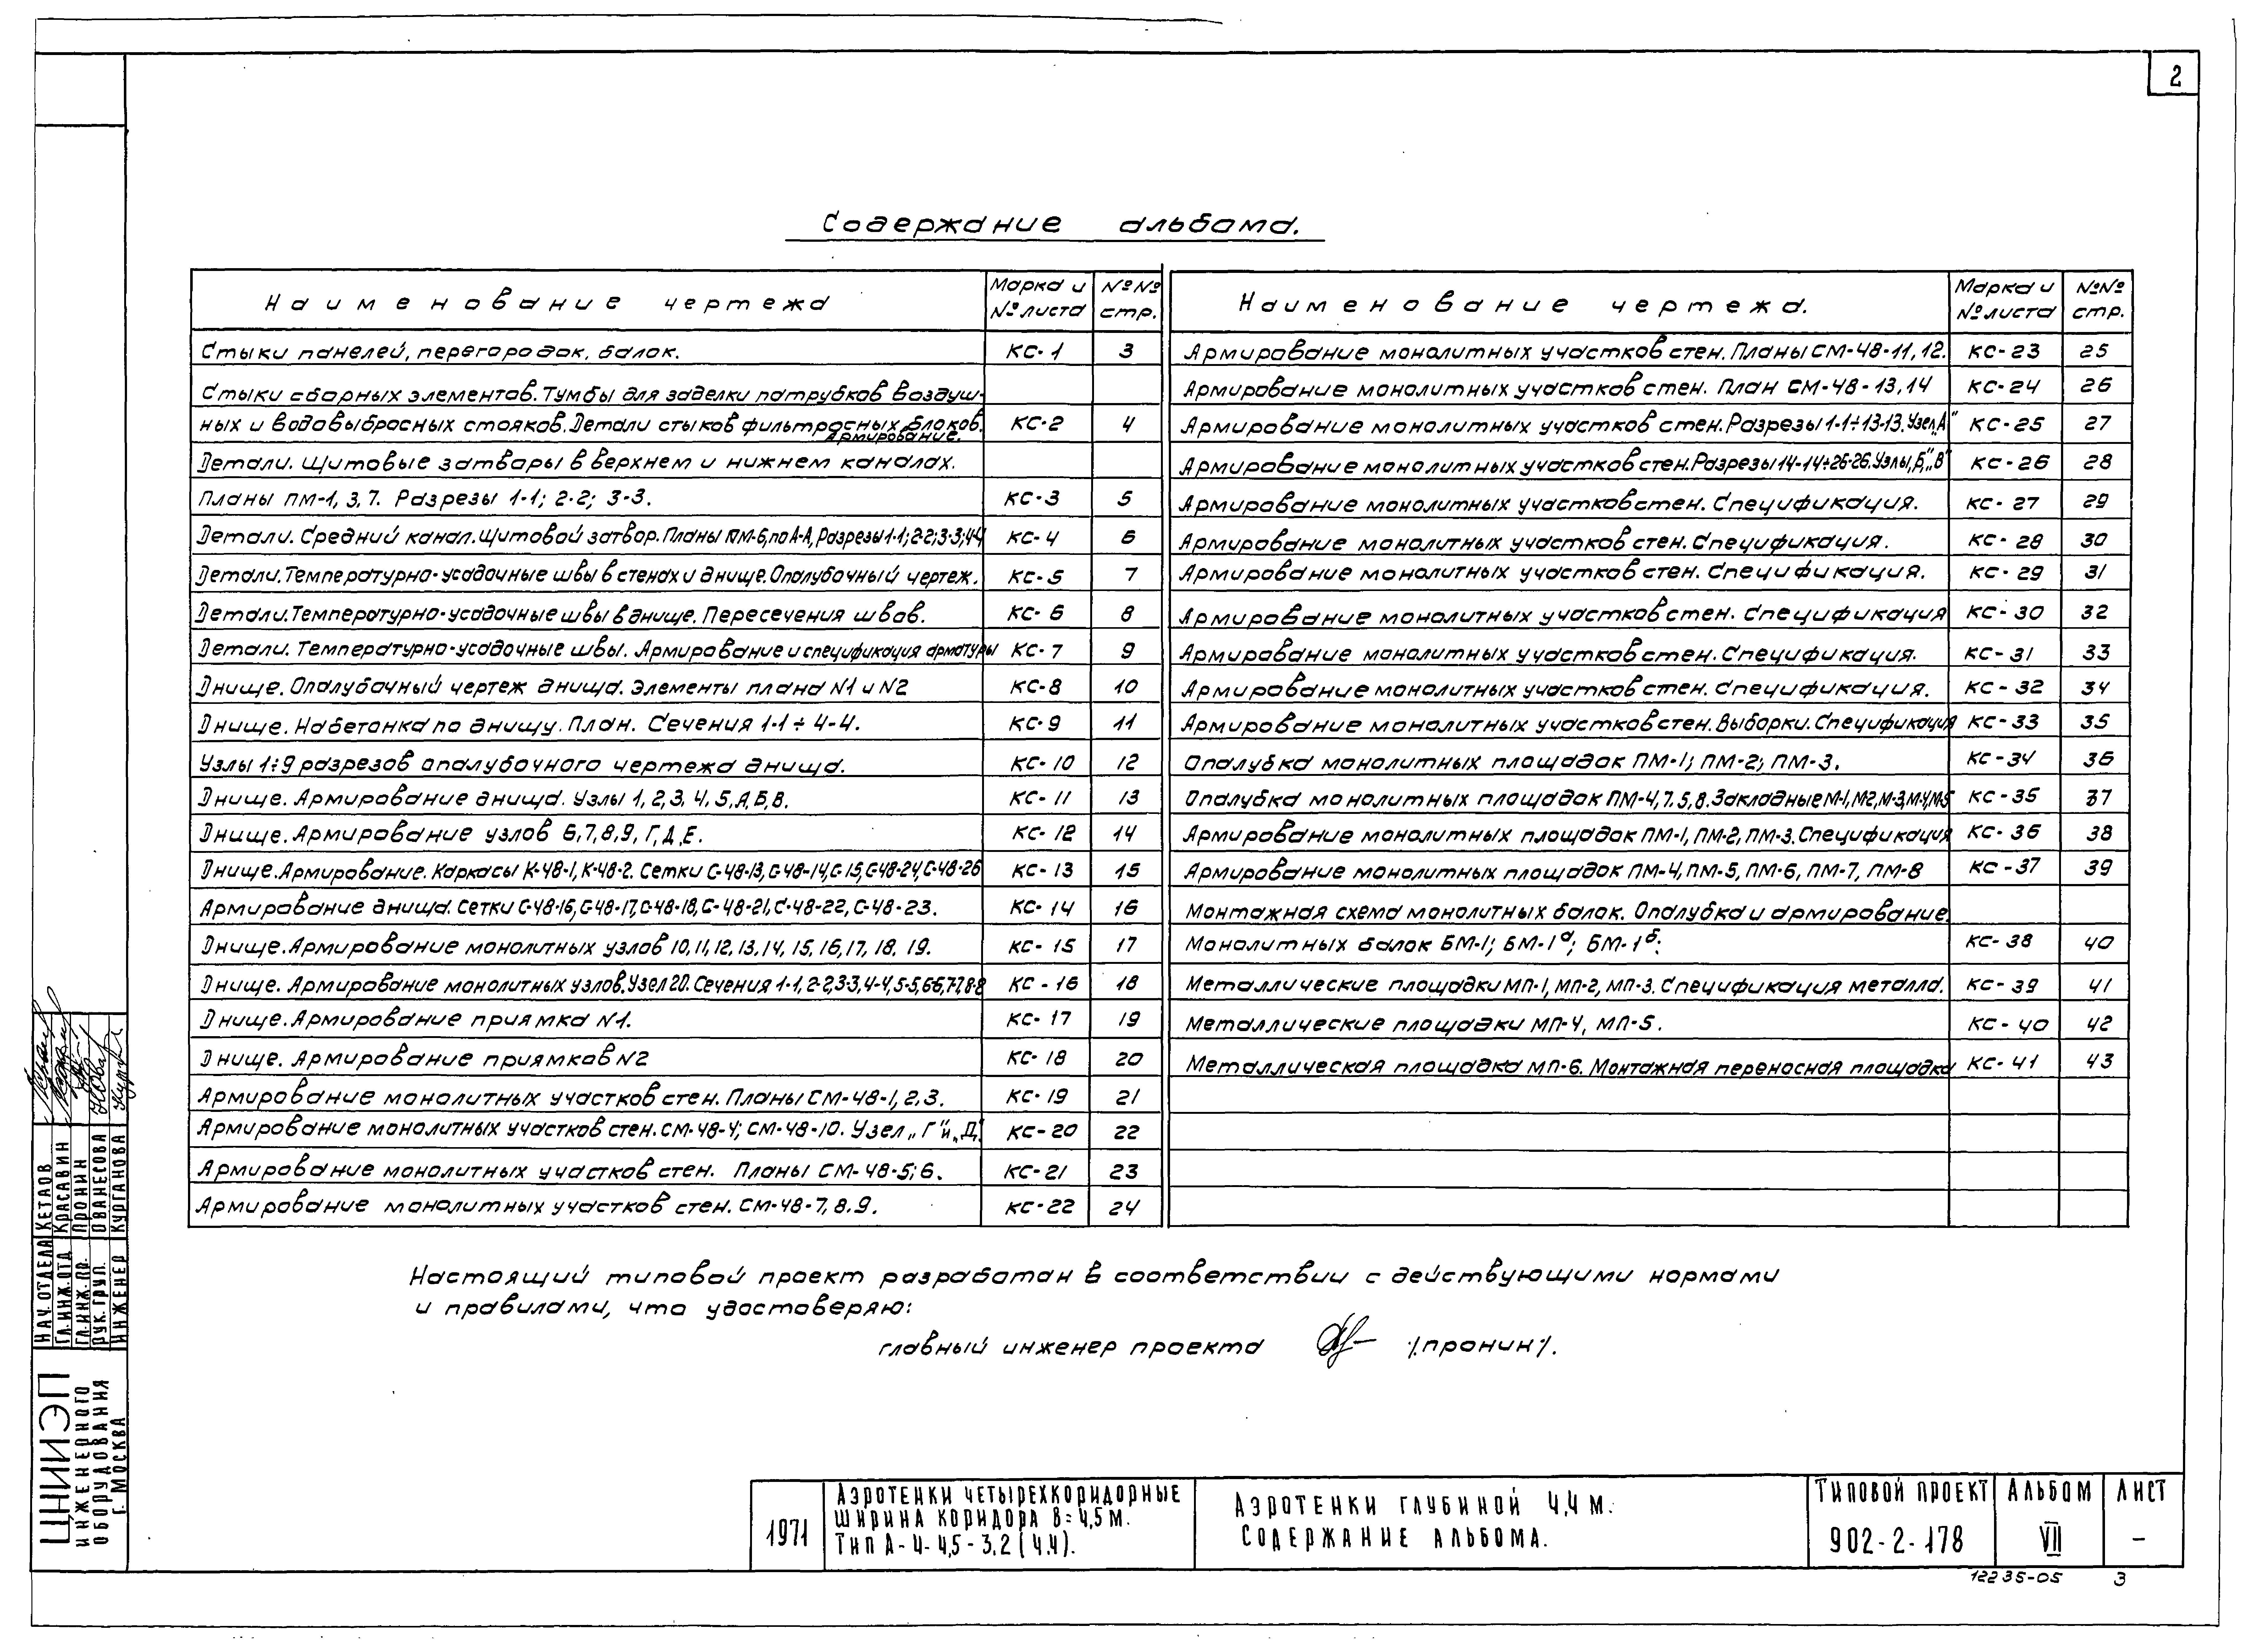 2
Содержание альбома.
Наименование чертежа
Марка и №листа
№№ стр.
Стыки панелей, перегородок, балок. КС-1 3
Стыки сборных элементов. Тумбы для заделки патрубков воздуш-
ных и водовыбросных стояков. Детали стыков фильтросных блоков. КС-2 4
Армирование.
Детали. Щитовые затвары в верхнем и нижнем каналах.
Планы ПМ-1, 3, 7. Разрезы 1-1; 2-2; 3-3. КС-3 5
Детали. Средний канал. Щитовой затвор. Планы ПМ-6, по А-А, Разрезы 1-1; 2-2; 3-3; 4-4 КС-4 6
Детали. Температурно-усадочные швы в стенах и днище. Опалубочный чертеж. КС-5 7
Детали. Температурно-усадочные швы в днище. Пересечения швов. КС-6 8
Детали. Температурно-усадочные швы. Армирование и спецификация арматуры КС-7 9
Днище. Опалубочный чертеж днища. Элементы плана N1 и N2 КС-8 10
Днище. Набетонка по днищу. План. Сечения 1-1÷4-4. КС-9 11
Узлы 1÷9 разрезов опалубочного чертежа днища. КС-10 12
Днище. Армирование днища. Узлы 1, 2, 3, 4, 5, А, Б, В. КС-11 13
Днище. Армирование узлов 6, 7, 8, 9, Г, Д, Е. КС-12 14
Днище. Армирование. Каркасы К-48-1, К-48-2. Сетки С-48-13, С-48-14, С-15, С-48-24, С-48-26 КС-13 15
Армирование днища. Сетки С-48-16, С-48-17, С-48-18, С-48-21, С-48-22, С-48-23. КС-14 16
Днище. Армирование монолитных узлов 10, 11, 12, 13, 14, 15, 16, 17, 18, 19. КС-15 17
Днище. Армирование монолитных узлов. Узел 20. Сечения 1-1, 2-2, 3-3, 4-4, 5-5, 6-6, 7-7, 8-8 КС-16 18
Днище. Армирование приямка N1. КС-17 19
Днище. Армирование приямков N2 КС-18 20
Армирование монолитных участков стен. Планы СМ-48-1, 2, 3. КС-19 21
Армирование монолитных участков стен. СМ-48-4; СМ-48-10. Узел „Г" и „Д" КС-20 22
Армирование монолитных участков стен. Планы СМ-48-5; 6. КС-21 23
Армирование монолитных участков стен. СМ-48-7, 8, 9. КС-22 24
Наименование чертежа.
Марка и №листа
№№ стр.
Армирование монолитных участков стен. Планы СМ-48-11, 12. КС-23 25
Армирование монолитных участков стен. План СМ-48-13, 14 КС-24 26
Армирование монолитных участков стен. Разрезы 1-1÷13-13. Узел „А" КС-25 27
Армирование монолитных участков стен. Разрезы 14-14÷26-26. Узлы „Б", „В" КС-26 28
Армирование монолитных участков стен. Спецификация. КС-27 29
Армирование монолитных участков стен. Спецификация. КС-28 30
Армирование монолитных участков стен. Спецификация. КС-29 31
Армирование монолитных участков стен. Спецификация КС-30 32
Армирование монолитных участков стен. Спецификация. КС-31 33
Армирование монолитных участков стен. Спецификация. КС-32 34
Армирование монолитных участков стен. Выборки. Спецификация КС-33 35
Опалубка монолитных площадок ПМ-1; ПМ-2; ПМ-3. КС-34 36
Опалубка монолитных площадок ПМ-4, 7, 5, 8. Закладные М-1, М-2, М-3, М-4, М-5 КС-35 37
Армирование монолитных площадок ПМ-1, ПМ-2, ПМ-3. Спецификация КС-36 38
Армирование монолитных площадок ПМ-4, ПМ-5, ПМ-6, ПМ-7, ПМ-8 КС-37 39
Монтажная схема монолитных балок. Опалубка и армирование.
Монолитных балок БМ-1; БМ-1а; БМ-1б. КС-38 40
Металлические площадки МП-1, МП-2, МП-3. Спецификация металла. КС-39 41
Металлические площадки МП-4, МП-5. КС-40 42
Металлическая площадка МП-6. Монтажная переносная площадка КС-41 43
Настоящий типовой проект разработан в соответствии с действующими нормами
и правилами, что удостоверяю:
главный инженер проекта /пронин/.
НАЧ. ОТДЕЛА КЕТАОВ
ГЛ. ИНЖ. ОТД КРАСАВИН
ГЛ. ИНЖ. ПР. ПРОНИН
РУК. ГРУП. ОВАНЕСОВА
ИНЖЕНЕР КУРГАНОВА
ЦНИИЭП
ИНЖЕНЕРНОГО
ОБОРУДОВАНИЯ
Г. МОСКВА
1971
АЭРОТЕНКИ ЧЕТЫРЕХКОРИДОРНЫЕ
ШИРИНА КОРИДОРА В=4,5 М.
ТИП А-4-4,5-3,2 (4.4).
АЭРОТЕНКИ ГЛУБИНОЙ 4,4 М.
СОДЕРЖАНИЕ АЛЬБОМА.
ТИПОВОЙ ПРОЕКТ
902-2-178
АЛЬБОМ
VII
ЛИСТ
–
12235-05 3